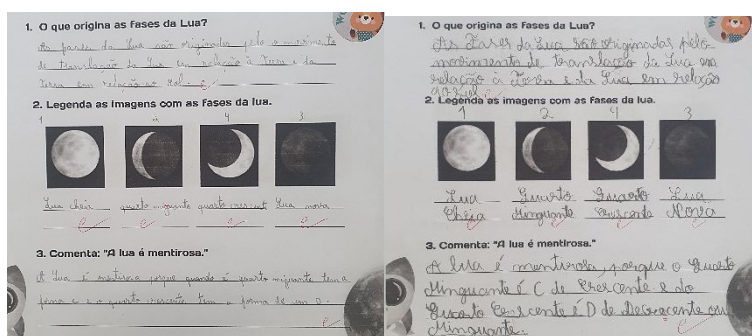 1. O que origina as fases da Lua?
As fases da Lua são originadas pelo o movimento
de translação da Lua em relação à Terra e da
Terra em relação ao Sol.
2. Legenda as imagens com as fases da lua.
1 2 4 3
Lua cheia quarto minguante quarto crescent Lua nova
3. Comenta: "A lua é mentirosa."
A Lua é mentirosa porque quando é quarto minguante tem a
forma c e o quarto crescente tem a forma de um D.
1. O que origina as fases da Lua?
As Fases da Lua são originadas pelo
movimento de translação da Lua em
relação à Terra e da Lua em relação
ao Sol.
2. Legenda as imagens com as fases da lua.
1 2 4 3
Lua Quarto Quarto Lua
Cheia Minguante Crescente Nova
3. Comenta: "A lua é mentirosa."
A lua é mentirosa, porque o Quarto
Minguante é C de Crescente e do
Quarto Crescente é D de Decrescente ou
Minguante.